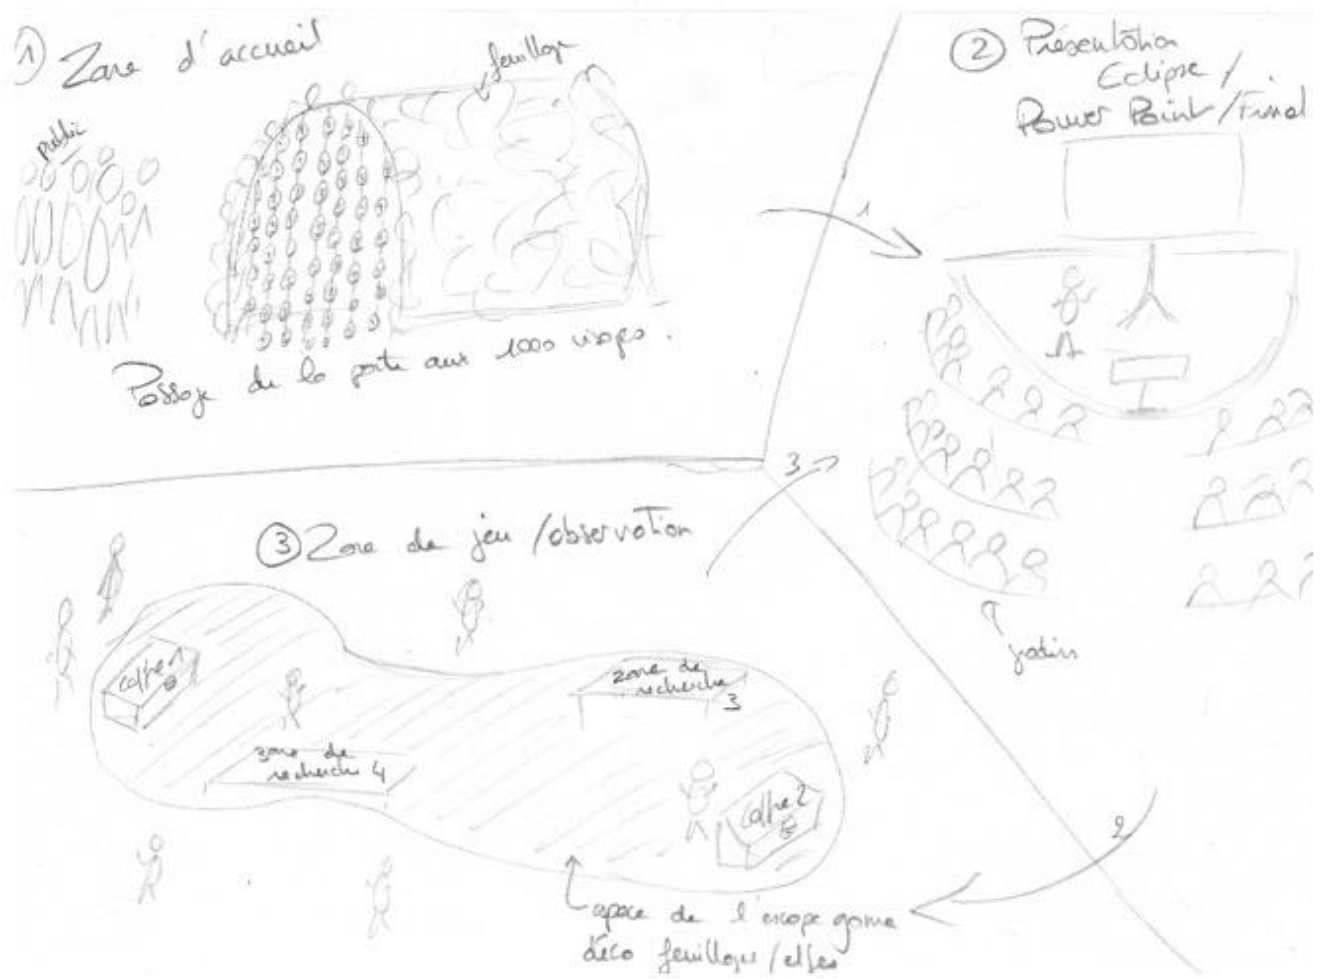 ① Zone d'accueil
public
feuillage
Passage de la porte aux 1000 visages.
1
② Présentation
Eclipse /
Power Point / Final
gradins
3
③ Zone de jeu / observation
coffre 1
zone de
recherche
3
zone de
recherche 4
coffre 2
2
espace de l'escape game
déco feuillages / elfes